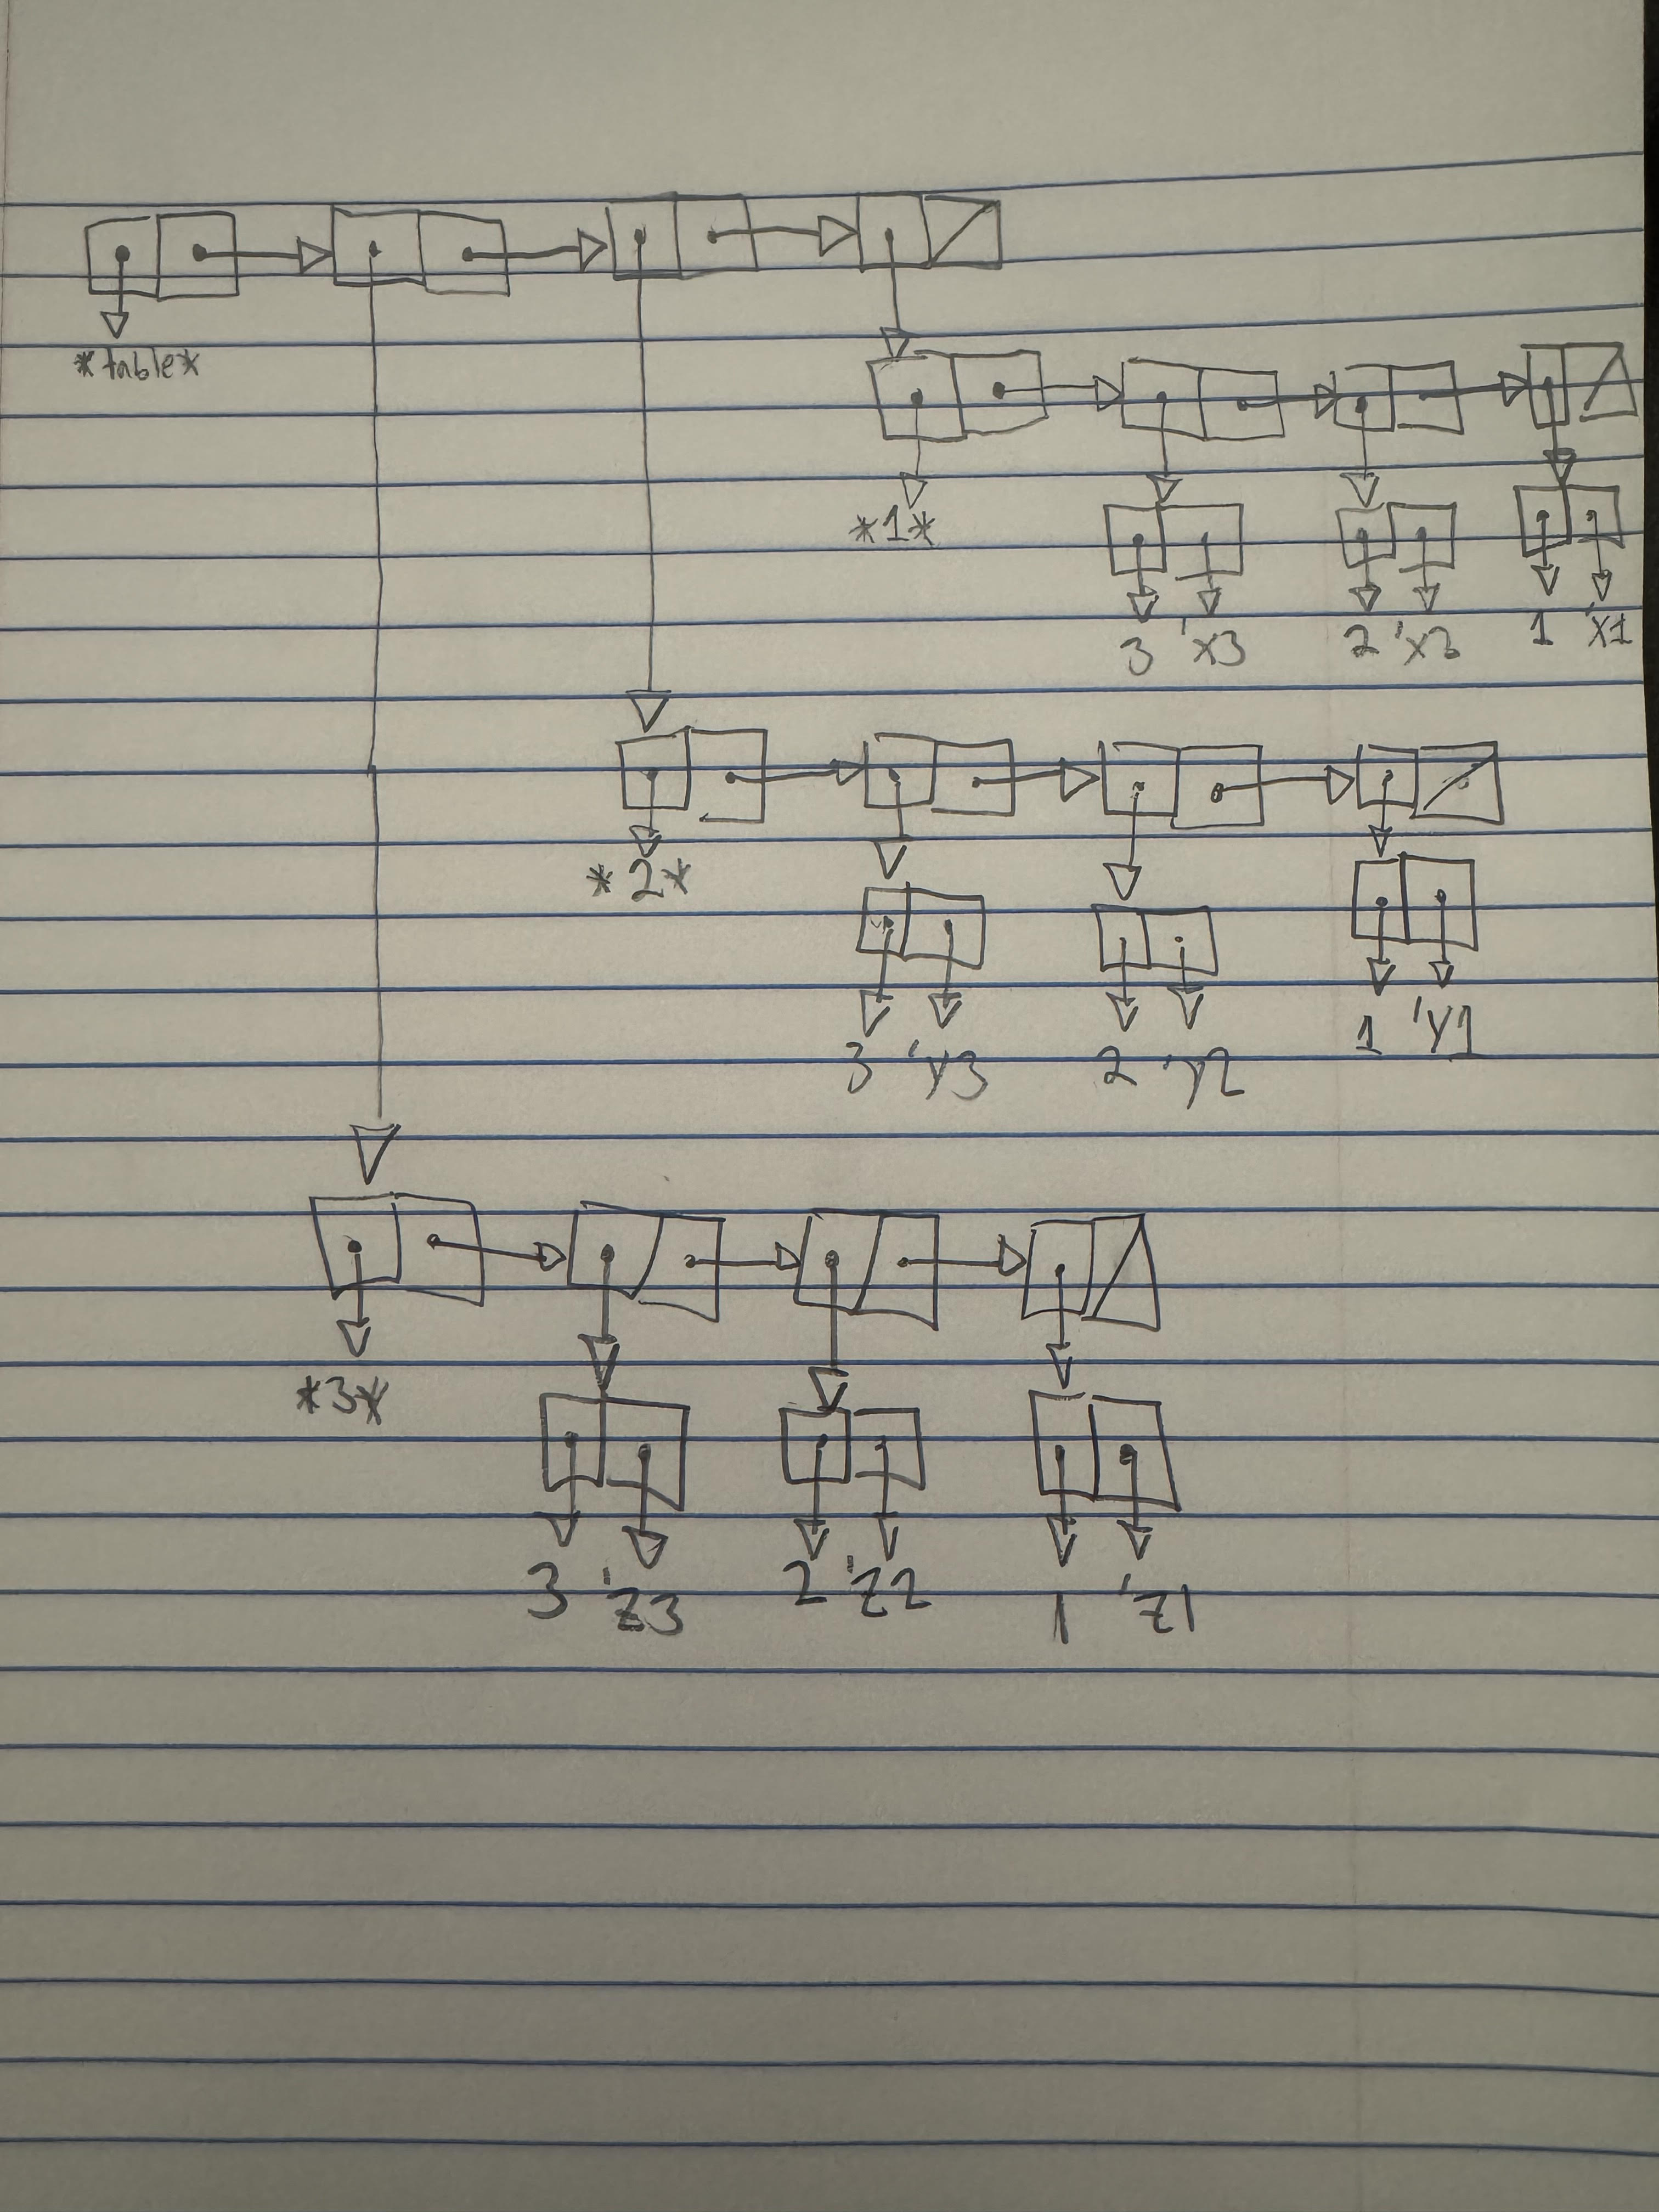 *table*
*1*
3 'x3 2 'x2 1 'x1
*2*
3 'y3 2 'y2 1 'y1
*3*
3 'z3 2 'z2 1 'z1